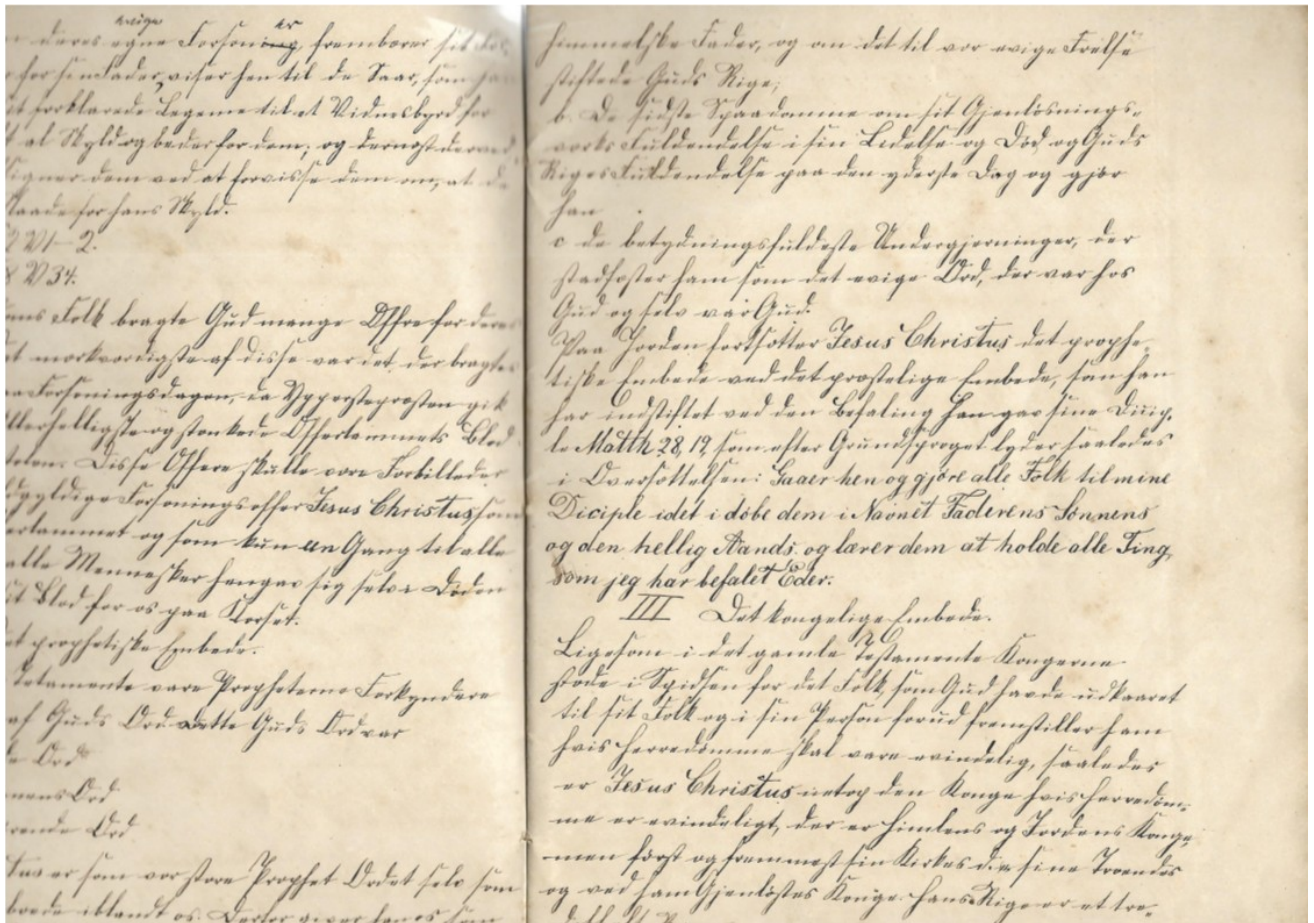 evige er
deres egne Forsoning, frembærer sit
for sin Fader, viser hen til de Saar, som
forklarede Legeme til et Vidnesbyrd for
al Skyld og beder for dem; og dernæst derved
signer dem ved at forvisse dem om, at de
Naade for hans Skyld.
2 V 1-2.
8 V 34.
Folk bragte Gud mange Offre for deres
mærkværdigste af disse var det, der bragtes
Forsoningsdagen, da Ypperstepræsten gik
Allerhelligste og stænkede Offerlammets Blod
Disse Offere skulle være Forbilleder
gyldige Forsoningsoffer Jesus Christus som
og som kun een Gang til alle
alle Mennesker hengav sig selv i Døden
sit Blod for os paa Korset.
prophetiske Embede.
Testamente vare Propheterne Forkyndere
af Guds Ord. Dette Guds Ord var
Ord
Ord
Ord
er som vor store Prophet Ordet selv som
boede iblandt os. Derfor giver han os
himmelske Fader, og om det til vor evige Frelse
stiftede Guds Rige;
b. De sidste Spaadomme om sit Gjenløsnings-
værks Fuldendelse i sin Lidelse og Død og Guds
Riges Fuldendelse paa den yderste Dag og gjør
han
c de betydningsfuldeste Undergjerninger, der
stadfæster ham som det evige Ord, der var hos
Gud og selv var Gud.
Paa Jorden fortsætter Jesus Christus det prophe-
tiske Embede ved det præstelige Embede, som han
har indstiftet ved den Befaling han gav sine Discip-
le Matth 28,19, som efter Grundsproget lyder saaledes
i Oversættelsen: Gaaer hen og gjøre alle Folk til mine
Diciple idet i døbe dem i Navnet Faderens Sønnens
og den hellig Aands. og lærer dem at holde alle Ting,
som jeg har befalet Eder.
III Det kongelige Embede.
Ligesom i det gamle Testamente Kongerne
stode i Spidsen for det Folk, som Gud havde udkaaret
til sit Folk og i sin Person forud fremstiller ham
hvis Herredømme skal være evindelig, saaledes
er Jesus Christus netop den Konge hvis Herredøm-
me er evindeligt, der er Himlens og Jordens Konge
men først og fremmest sin Kirkes d.e. sine Troendes
og ved ham Gjenløstes Konge. Hans Rige er et tre-